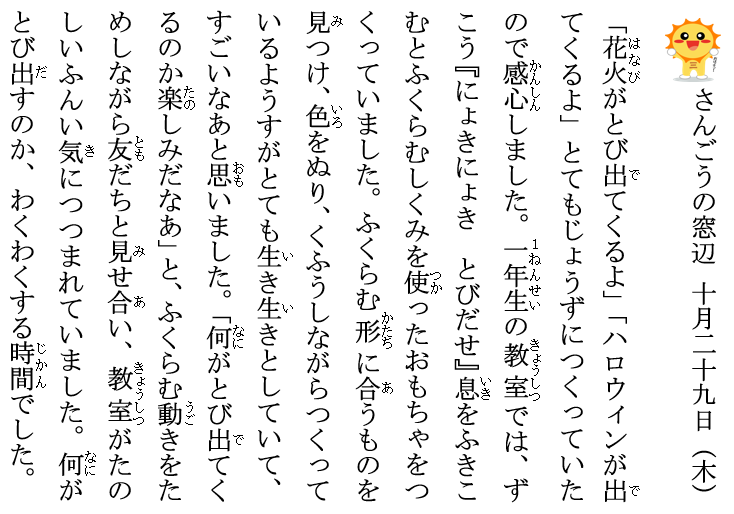 さんごうの窓辺 十月二十九日（木）
「花火がとび出てくるよ」「ハロウィンが出
てくるよ」とてもじょうずにつくっていた
ので感心しました。一年生の教室では、ず
こう『にょきにょき とびだせ』息をふきこ
むとふくらむしくみを使ったおもちゃをつ
くっていました。ふくらむ形に合うものを
見つけ、色をぬり、くふうしながらつくって
いるようすがとても生き生きとしていて、
すごいなあと思いました。「何がとび出てく
るのか楽しみだなあ」と、ふくらむ動きをた
めしながら友だちと見せ合い、教室がたの
しいふんい気につつまれていました。何が
とび出すのか、わくわくする時間でした。